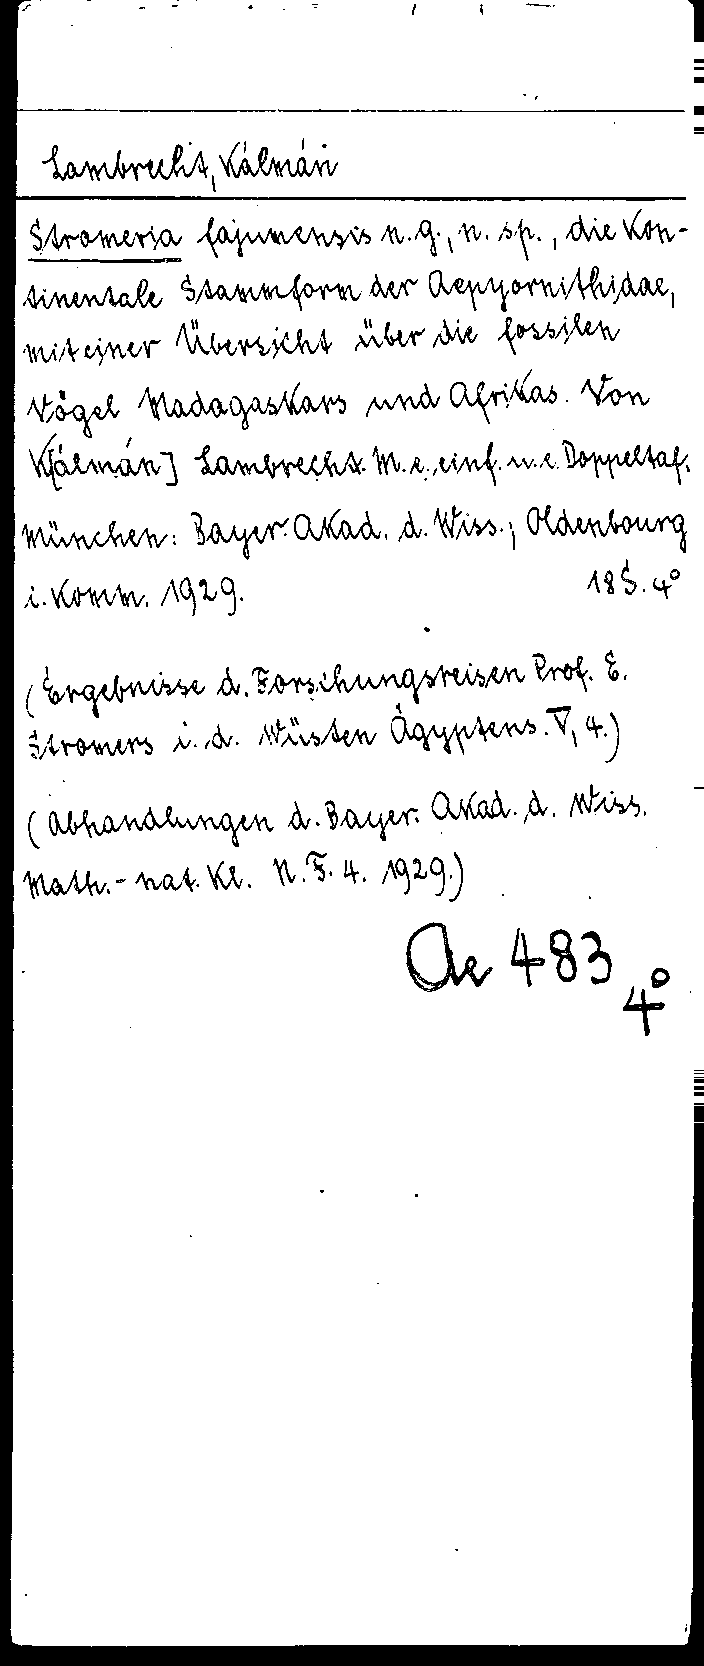 Lambrecht, Kálmán
Stromeria fajumensis n. g., n. sp., die kon-
tinentale Stammform der Aepyornithidae,
mit einer Übersicht über die fossilen
Vögel Madagaskars und Afrikas. Von
K[álmán] Lambrecht. M. e. einf. u. e. Doppeltaf.
München: Bayer. Akad. d. Wiss.; Oldenbourg
i. Komm. 1929. 18 S. 4°
(Ergebnisse d. Forschungsreisen Prof. E.
Stromers i. d. Wüsten Ägyptens. V, 4.)
(Abhandlungen d. Bayer. Akad. d. Wiss.
Math.-nat. Kl. N. F. 4. 1929.)
Ae 483
4°